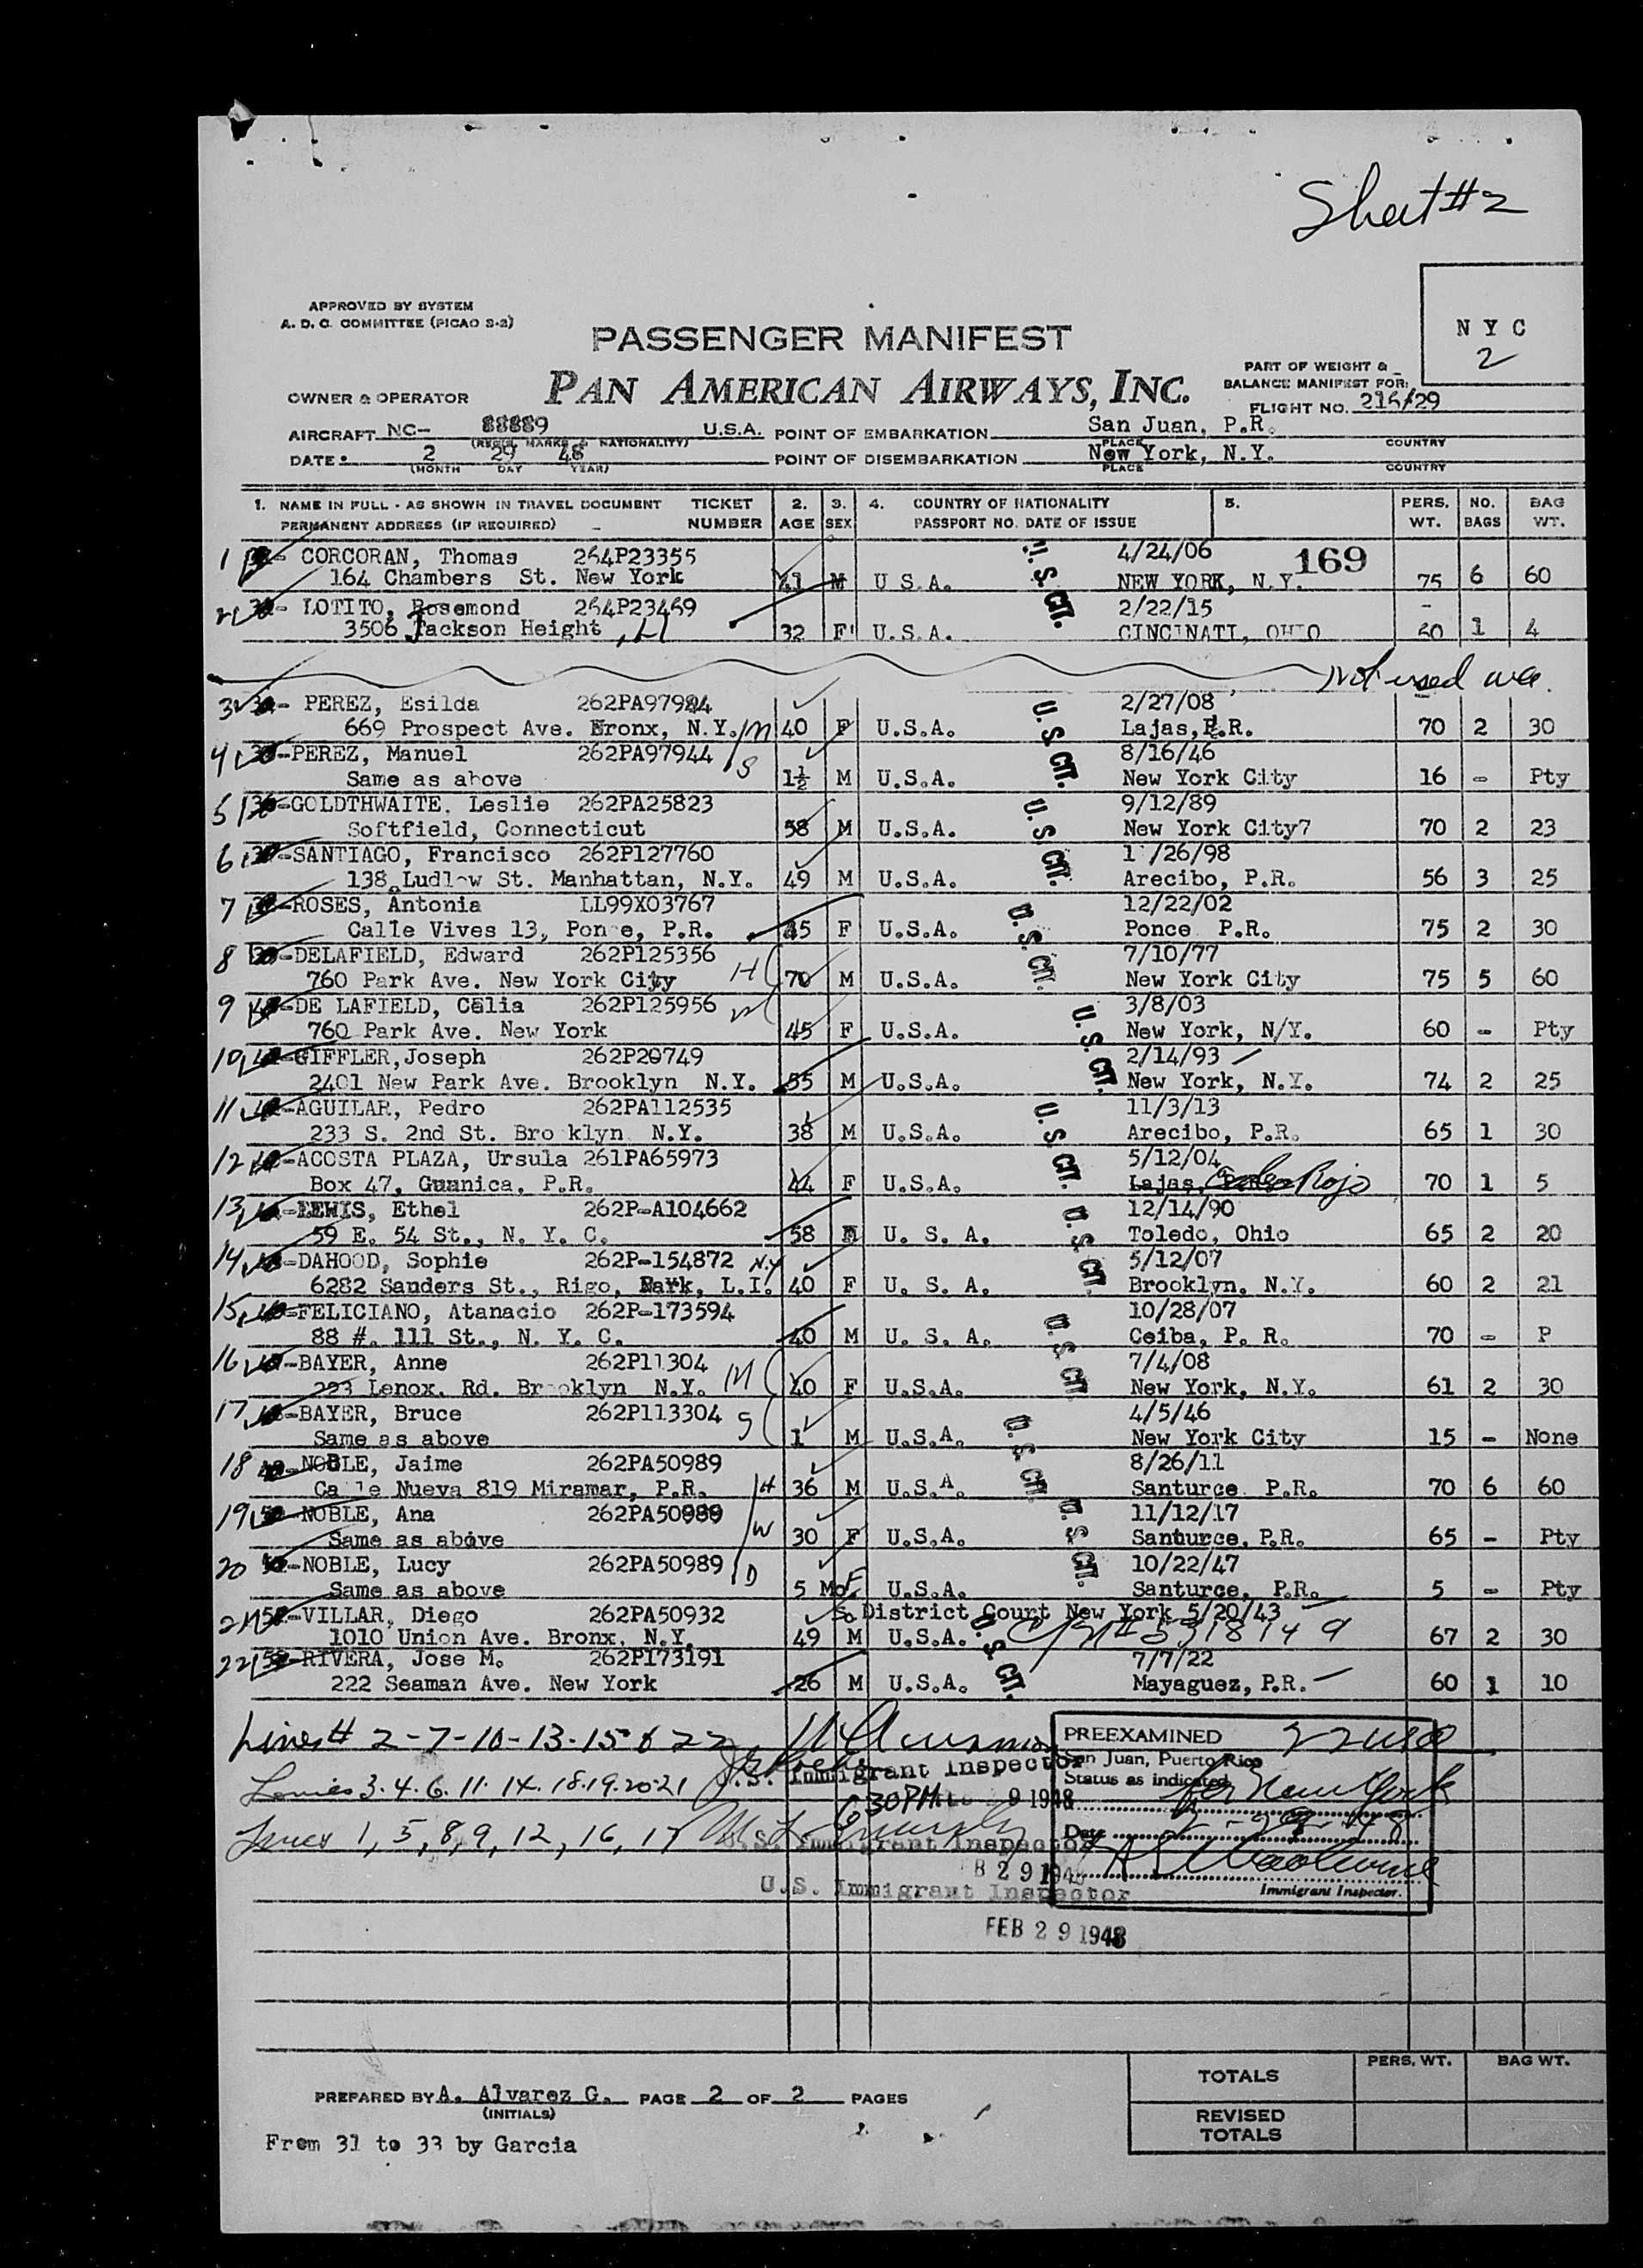 Sheet #2
APPROVED BY SYSTEM
A. D. C. COMMITTEE (PICAO S-2)
N Y C
2
PASSENGER MANIFEST
PAN AMERICAN AIRWAYS, INC.
PART OF WEIGHT &
BALANCE MANIFEST FOR:
FLIGHT NO. 216/29
OWNER & OPERATOR
AIRCRAFT NC- 88889 U.S.A. POINT OF EMBARKATION San Juan, P.R.
(REGIS. MARKS & NATIONALITY) PLACE COUNTRY
DATE: 2 29 48 POINT OF DISEMBARKATION New York, N.Y.
(MONTH DAY YEAR) PLACE COUNTRY
1. NAME IN FULL - AS SHOWN IN TRAVEL DOCUMENT TICKET 2. 3. 4. COUNTRY OF NATIONALITY 5. PERS. NO. BAG
PERMANENT ADDRESS (IF REQUIRED) NUMBER AGE SEX PASSPORT NO. DATE OF ISSUE WT. BAGS WT.
1 CORCORAN, Thomas 264P23355 4/24/06 169
164 Chambers St. New York 41 M U S.A. U.S. CIT. NEW YORK, N.Y. 75 6 60
2 LOTITO, Rosemond 264P23469 2/22/15 -
3506 Jackson Height, LI 32 F U.S.A. CINCINATI, OHIO 60 1 4
Not used
3 PEREZ, Esilda 262PA97944 2/27/08
669 Prospect Ave. Bronx, N.Y. M 40 F U.S.A. U.S. CIT. Lajas, P.R. 70 2 30
4 PEREZ, Manuel 262PA97944 8/16/46
Same as above S 1½ M U.S.A. New York City 16 - Pty
5 GOLDTHWAITE. Leslie 262PA25823 9/12/89
Softfield, Connecticut 58 M U.S.A. U.S. CIT. New York City7 70 2 23
6 SANTIAGO, Francisco 262P127760 1 /26/98
138 Ludlow St. Manhattan, N.Y. 49 M U.S.A. Arecibo, P.R. 56 3 25
7 ROSES, Antonia LL99X03767 12/22/02
Calle Vives 13, Ponce, P.R. 45 F U.S.A. U.S. CIT. Ponce P.R. 75 2 30
8 DELAFIELD, Edward 262P125356 7/10/77
760 Park Ave. New York City H 70 M U.S.A. New York City 75 5 60
9 DE LAFIELD, Celia 262P125956 3/8/03
760 Park Ave. New York W 45 F U.S.A. U.S. CIT. New York, N/Y. 60 - Pty
10 GIFFLER, Joseph 262P20749 2/14/93
2401 New Park Ave. Brooklyn N.Y. 55 M U.S.A. New York, N.Y. 74 2 25
11 AGUILAR, Pedro 262PA112535 11/3/13
233 S. 2nd St. Bro klyn N.Y. 38 M U.S.A. U.S. CIT. Arecibo, P.R. 65 1 30
12 ACOSTA PLAZA, Ursula 261PA65973 5/12/04
Box 47, Guanica, P.R. 44 F U.S.A. Lajas, P.R. Cabo Rojo 70 1 5
13 LEWIS, Ethel 262P-A104662 12/14/90
59 E. 54 St., N. Y. C. 58 F U. S. A. U.S. CIT. Toledo, Ohio 65 2 20
14 DAHOOD, Sophie 262P-154872 N.Y 5/12/07
6282 Sanders St., Rigo, Park, L.I. 40 F U. S. A. Brooklyn, N.Y. 60 2 21
15 FELICIANO, Atanacio 262P-173594 10/28/07
88 #. 111 St., N. Y. C. 40 M U. S. A. U.S. CIT. Ceiba, P. R. 70 - P
16 BAYER, Anne 262P11304 7/4/08
223 Lenox. Rd. Brooklyn N.Y. M 40 F U.S.A. New York, N.Y. 61 2 30
17 BAYER, Bruce 262P113304 4/5/46
Same as above S 1 M U.S.A. U.S. CIT. New York City 15 - None
18 NOBLE, Jaime 262PA50989 8/26/11
Calle Nueva 819 Miramar, P.R. H 36 M U.S.A. Santurce P.R. 70 6 60
19 NOBLE, Ana 262PA50989 11/12/17
Same as above W 30 F U.S.A. U.S. CIT. Santurce, P.R. 65 - Pty
20 NOBLE, Lucy 262PA50989 10/22/47
Same as above D 5 Mo F U.S.A. Santurce, P.R. 5 - Pty
21 VILLAR, Diego 262PA50932 S. District Court New York 5/20/43
1010 Union Ave. Bronx, N.Y. 49 M U.S.A. U.S. CIT. C/N # 5318149 67 2 30
22 RIVERA, Jose M. 262P173191 7/7/22
222 Seaman Ave. New York 26 M U.S.A. Mayaguez, P.R. 60 1 10
Lines # 2-7-10-13-15 & 22
U.S. Immigrant Inspector
Lines 3.4.6.11.14.18.19.20.21
6 30PM 9 1948
Lines 1, 5, 8, 9, 12, 16, 17
U.S. Immigrant Inspector
B 29 194
U.S. Immigrant Inspector
FEB 29 1948
PREEXAMINED 22 USC
San Juan, Puerto Rico
Status as indicated
for New York
Date 2-29-48
Immigrant Inspector.
TOTALS PERS. WT. BAG WT.
REVISED TOTALS
PREPARED BY A. Alvarez G. PAGE 2 OF 2 PAGES
(INITIALS)
From 31 to 33 by Garcia